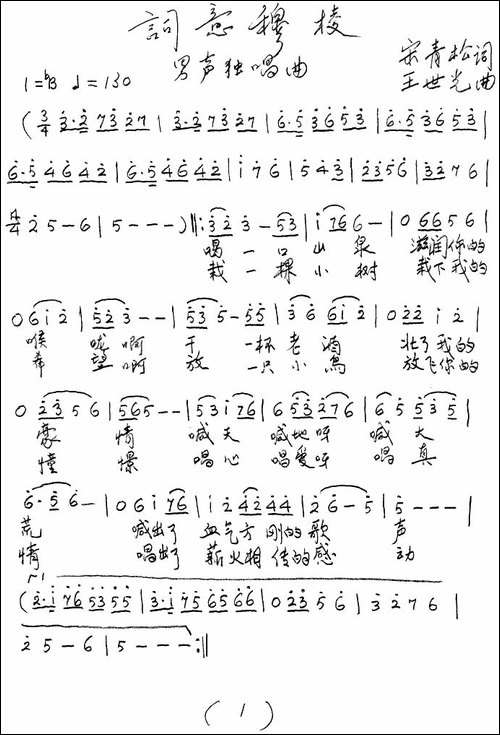 詞意穆棱
男声独唱曲
宋青松词
王世光曲
1=♭B ♩=130
(3/4 3·2 7327 | 3·2 7327 | 6·5 3653 | 6·5 3653 |
6·5 4642 | 6·5 4642 | i 7 6 | 5 4 3 | 2356 | 32 7 6 |
4/4 2 5 - 6 | 5 - - - ) ‖: 32 3 - 53 | i 76 6 - | 0 66 5 6 |
喝一口山泉 滋润你的
栽一棵小树 栽下我的
0 6 i 2 | 52 3 - - | 53 5 - 55 | 3 6 6i 2 | 0 22 i 2 |
喉咙啊 干一杯老酒 壮了我的
希望啊 放一只小鸟 放飞你的
0 23 5 6 | 565 - - | 53 i 76 | 6 53276 | 6 5 53 5 |
豪情 喊天喊地呀 喊大
憧憬 唱心唱爱呀 唱真
6·56 - | 0 6 i 76 | i 2 4244 | 2 6 - 5 | 5 - - - |
荒 喊出了血气方刚的歌声
情 唱出了薪火相传的感动
(2·i 76 53 55 | 3·i 75 65 66 | 0 23 5 6 | 3 2 7 6 |
2 5 - 6 | 5 - - - :‖
(1)